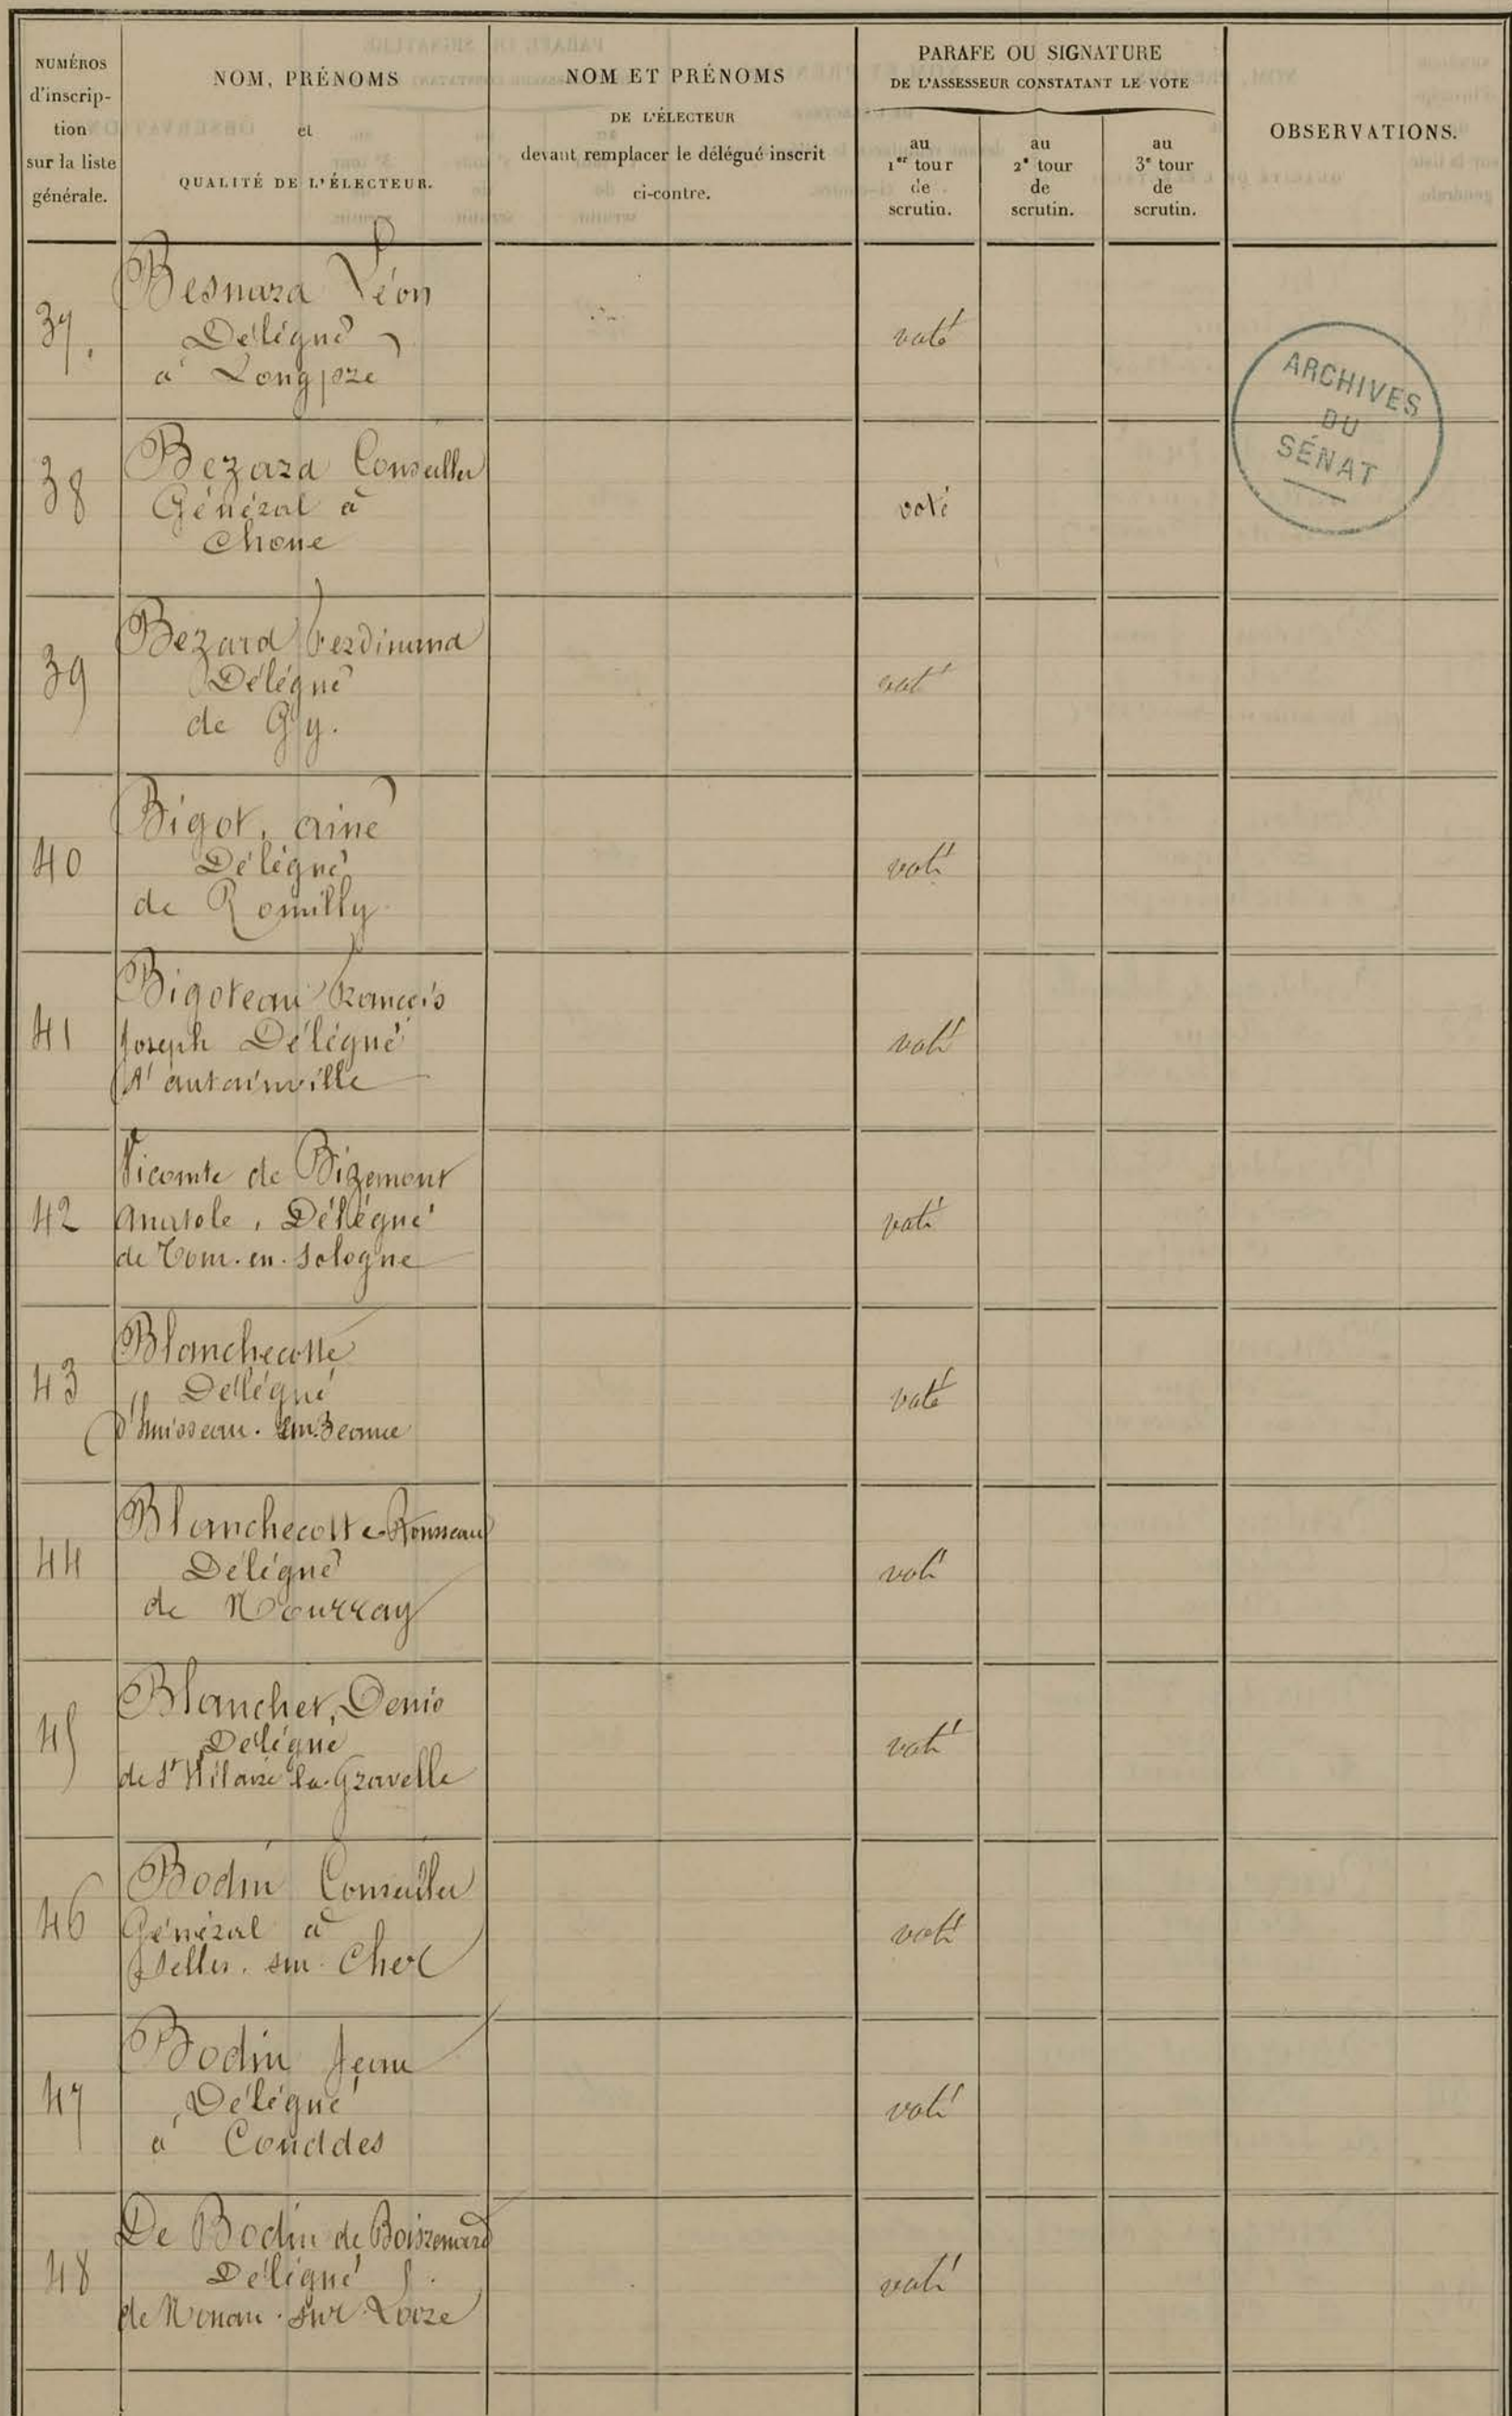 NUMÉROS
d'inscrip-
tion
sur la liste
générale.
NOM, PRÉNOMS
et
QUALITÉ DE L'ÉLECTEUR.
NOM ET PRÉNOMS
DE L'ÉLECTEUR
devant remplacer le délégué inscrit
ci-contre.
PARAFE OU SIGNATURE
DE L'ASSESSEUR CONSTATANT LE VOTE
au
1er tour
de
scrutin.
au
2e tour
de
scrutin.
au
3e tour
de
scrutin.
OBSERVATIONS.
Besnard Léon
37. Délégué voté
à Longpré
ARCHIVES
DU
SÉNAT
Bezard Conseiller
38 Général à voté
Choue
Bezard Ferdinand
39 Délégué voté
de Gy.
Bigot, ainé
40 Délégué voté
de Romilly
Bigoteau François
41 Joseph Délégué voté
d'autainville
Vicomte de Bizemont
42 Anatole, Délégué voté
de Tour-en-Sologne
Blanchecotte
43 Délégué voté
d'huisseau-en-Beauce
Blanchecotte-Rousseau
44 Délégué voté
de Nourray
Blanchet, Denis
45 Délégué voté
de St Hilaire la Gravelle
Bodin Conseiller
46 Général à voté
Selles-sur-Cher
Bodin Jean
47 Délégué voté
à Couddes
De Bodin de Boisrenard
48 Délégué voté
de Nouan-sur-Loire